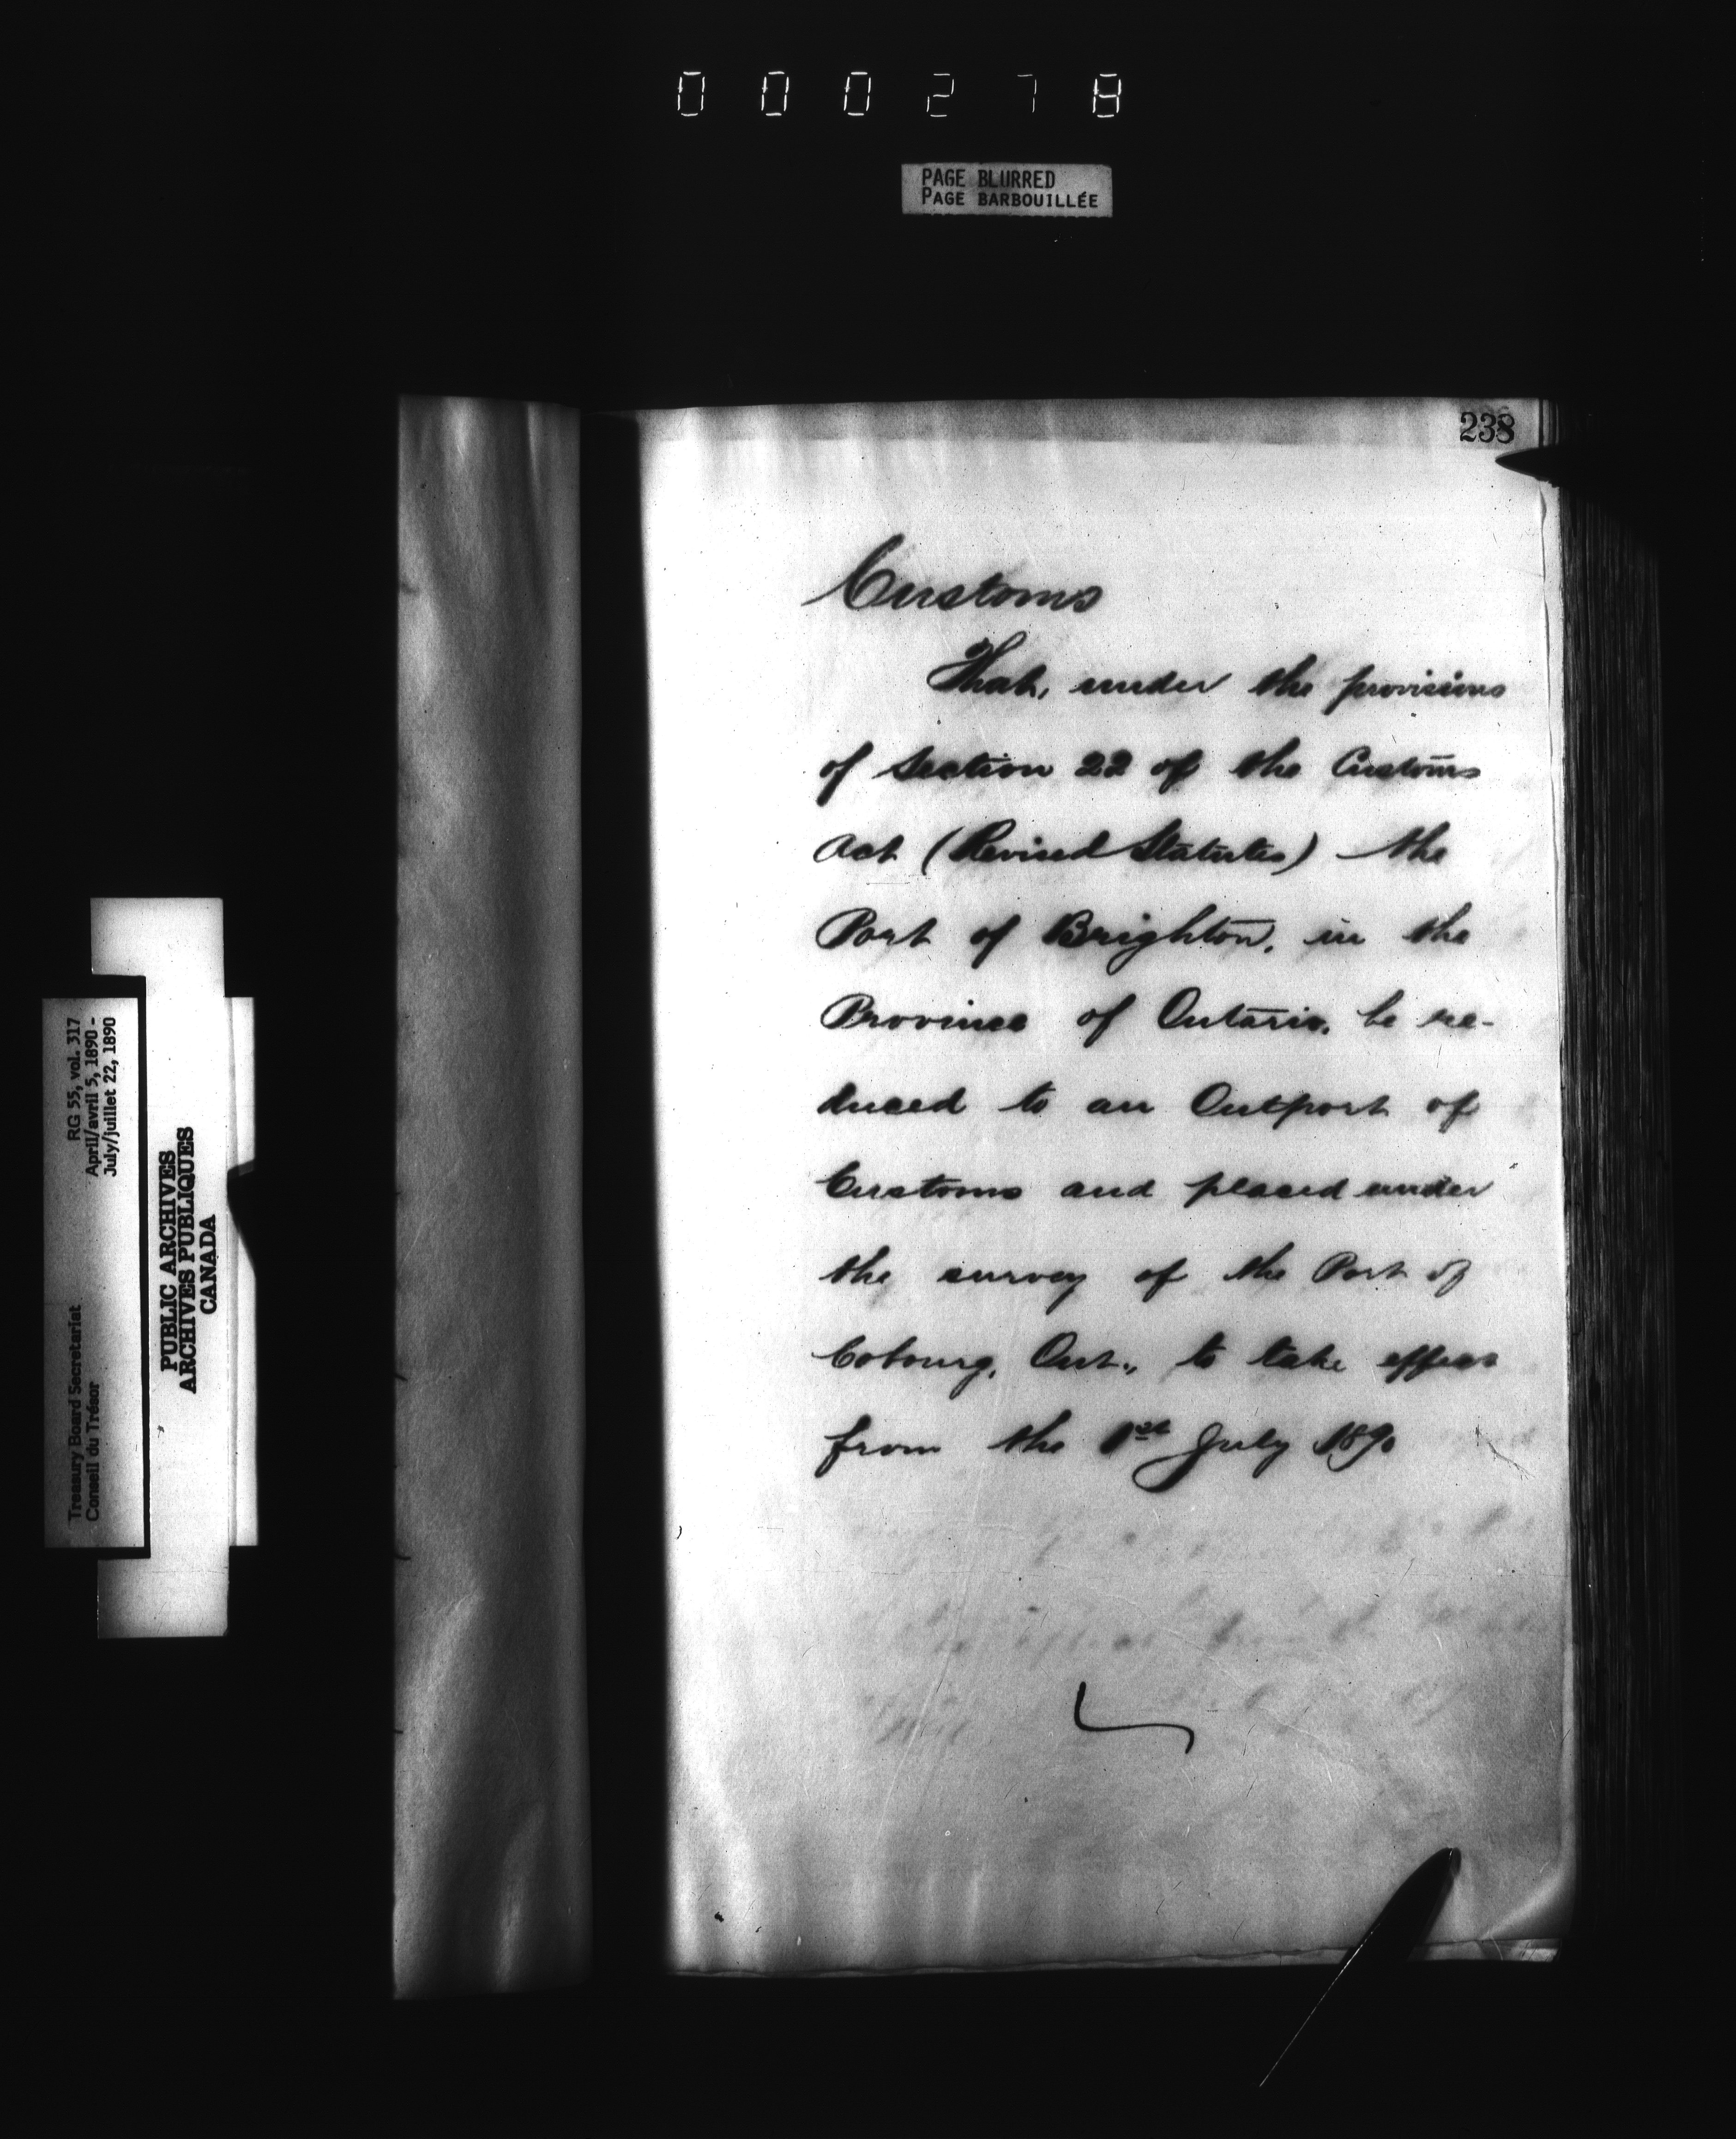 000278
PAGE BLURRED
PAGE BARBOUILLÉE
238
Customs
That, under the provisions
of Section 22 of the Customs
Act (Revised Statutes) the
Port of Brighton, in the
Province of Ontario, be re-
duced to an Outport of
Customs and placed under
the survey of the Port of
Cobourg, Ont., to take effect
from the 1st July 1890
RG 55, vol. 317
April/avril 5, 1890 -
July/juillet 22, 1890
Treasury Board Secretariat
Conseil du Trésor
PUBLIC ARCHIVES
ARCHIVES PUBLIQUES
CANADA